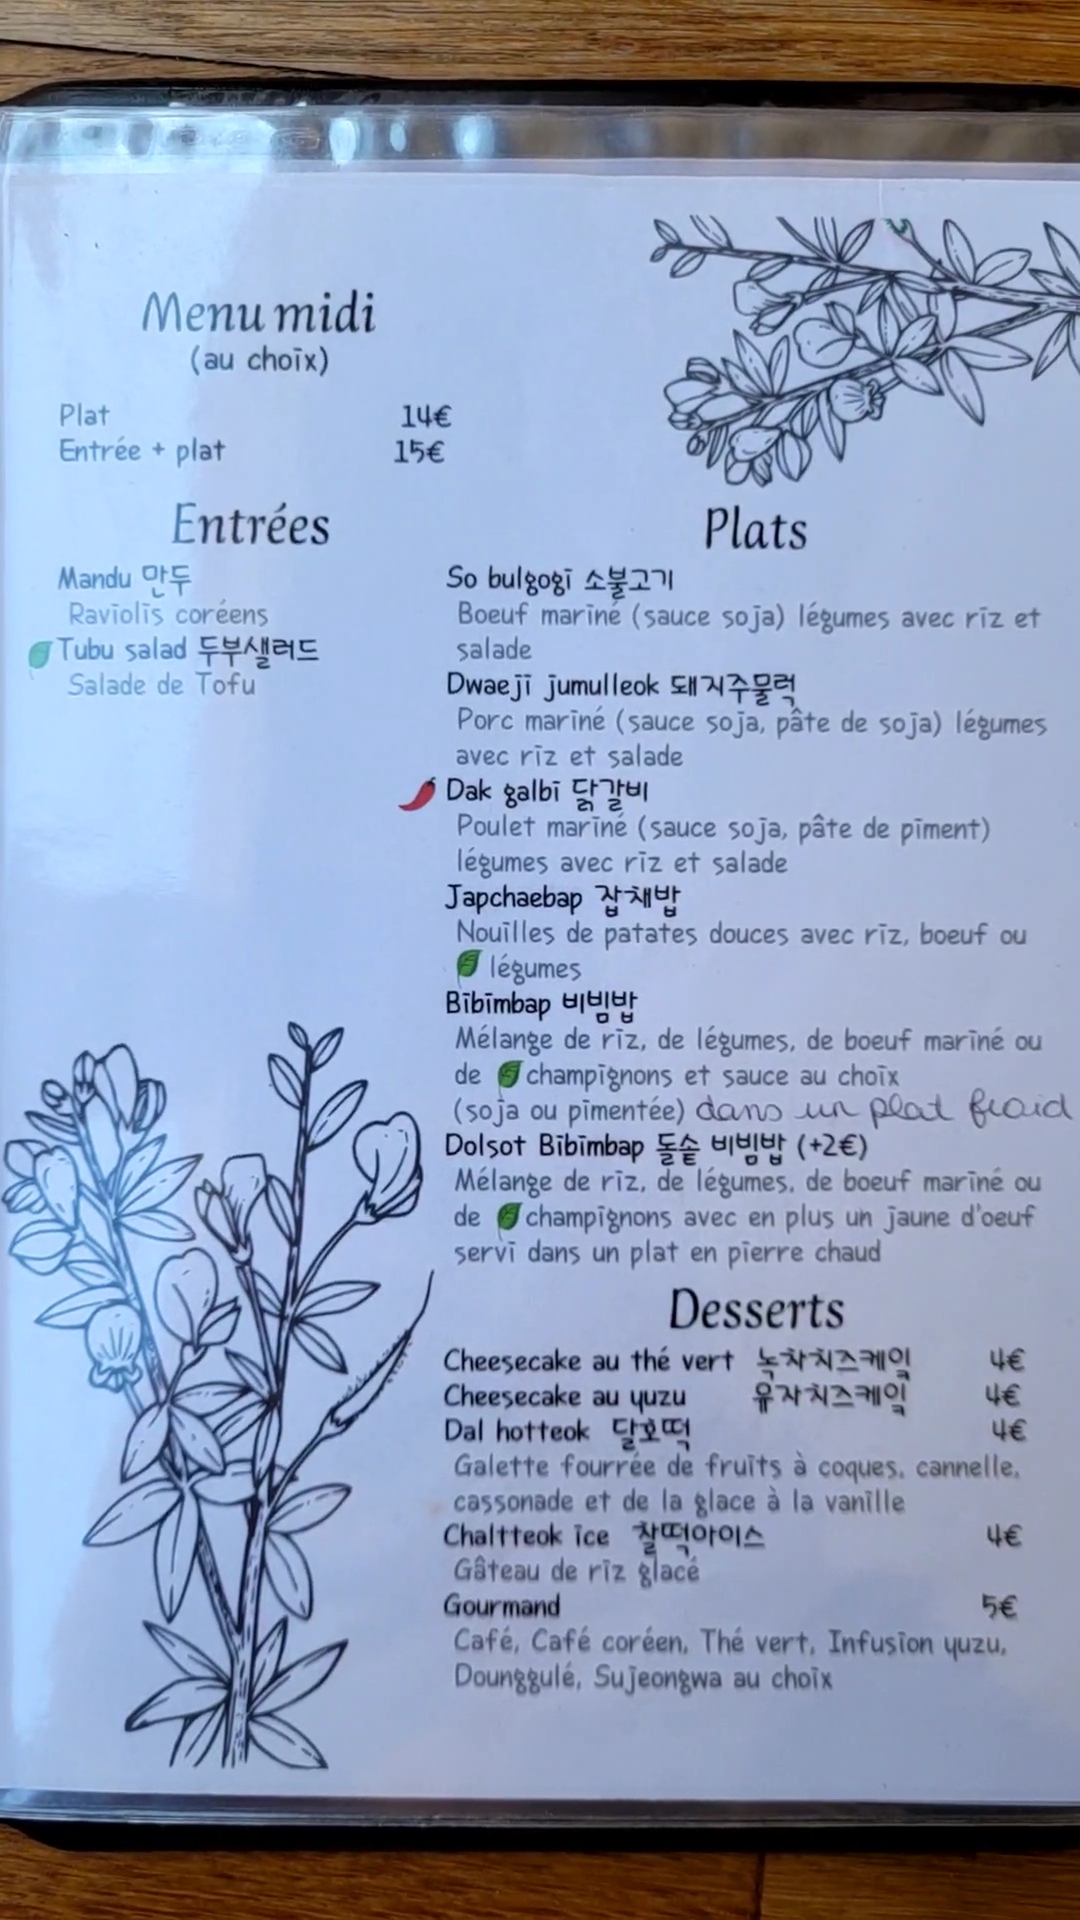 Menu midi
(au choix)
Plat 14€
Entrée + plat 15€
Entrées
Mandu 만두
Raviolis coréens
Tubu salad 두부샐러드
Salade de Tofu
Plats
So bulgogi 소불고기
Boeuf mariné (sauce soja) légumes avec riz et
salade
Dwaeji jumulleok 돼지주물럭
Porc mariné (sauce soja, pâte de soja) légumes
avec riz et salade
Dak galbi 닭갈비
Poulet mariné (sauce soja, pâte de piment)
légumes avec riz et salade
Japchaebap 잡채밥
Nouilles de patates douces avec riz, boeuf ou
légumes
Bibimbap 비빔밥
Mélange de riz, de légumes, de boeuf mariné ou
de champignons et sauce au choix
(soja ou pimentée) dans un plat froid
Dolsot Bibimbap 돌솥 비빔밥 (+2€)
Mélange de riz, de légumes, de boeuf mariné ou
de champignons avec en plus un jaune d'oeuf
servi dans un plat en pierre chaud
Desserts
Cheesecake au thé vert 녹차치즈케잌 4€
Cheesecake au yuzu 유자치즈케잌 4€
Dal hotteok 달호떡 4€
Galette fourrée de fruits à coques, cannelle,
cassonade et de la glace à la vanille
Chaltteok ice 찰떡아이스 4€
Gâteau de riz glacé
Gourmand 5€
Café, Café coréen, Thé vert, Infusion yuzu,
Dounggulé, Sujeongwa au choix